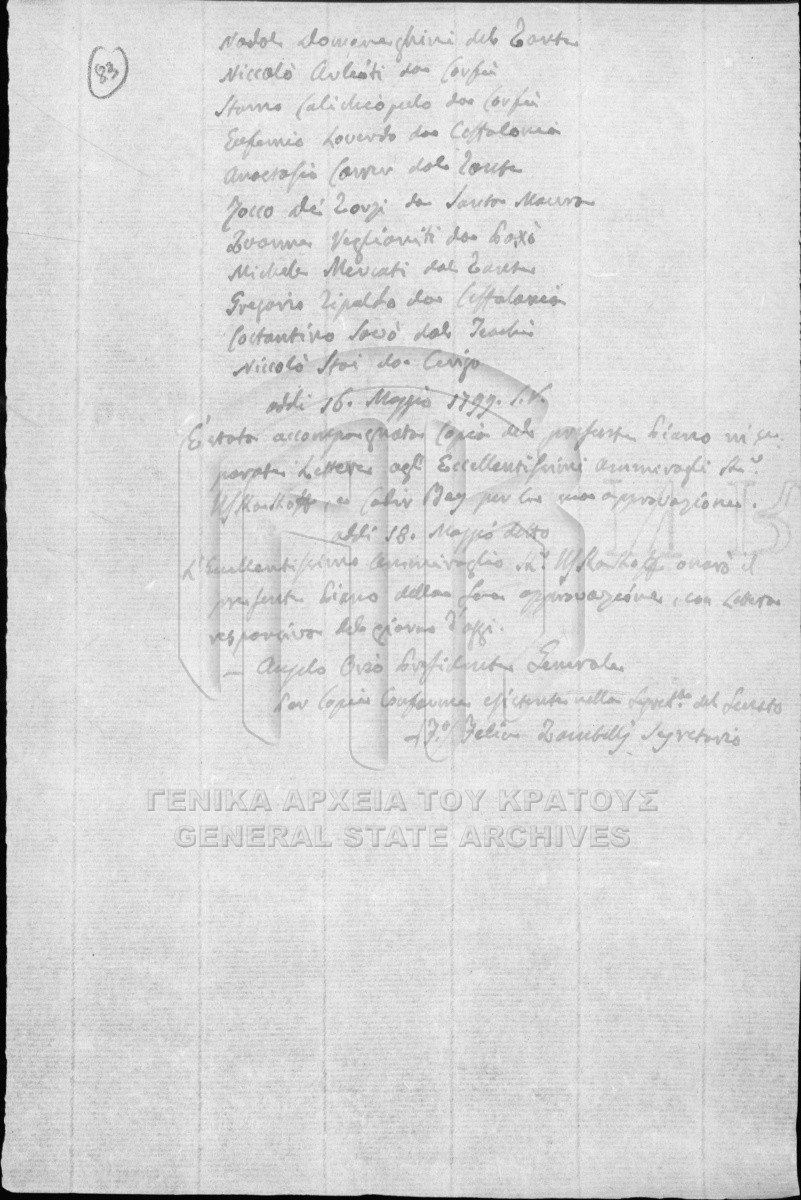 83
Nadal Domeneghini dal Zante
Niccolò Arliòti da Corfù
Stamo Calichiopulo da Corfù
Eufemio Loverdo da Ceffalonia
Anastasio Correr dal Zante
Zocco Dè Zorzi da Santa Maura
Zuanne Veglianiti da Paxò
Michele Mercati dal Zante
Gregorio Zipaldo da Ceffalonia
Costantino Savò dal Teachi
Niccolò Stai da Cerigo
addi 16. Maggio 1799. S.V.
È stata accompagnata Copia del presente Piano in se-
parate Lettere agl' Eccellentissimi Ammiragli
Uschakoff, e Cadir Bey per la sua approvazione.
addi 18. Maggio detto
L'Eccellentissimo Ammiraglio Uschakoff onorò il
presente Piano della sua approvazione, con Lettera
responsiva del giorno d'oggi.
— Angelo Orio Presidente Generale
Per Copia Conforme esistente nella Segret.ia del Senato
Felice Zambelli Segretario
ΓΕΝΙΚΑ ΑΡΧΕΙΑ ΤΟΥ ΚΡΑΤΟΥΣ
GENERAL STATE ARCHIVES